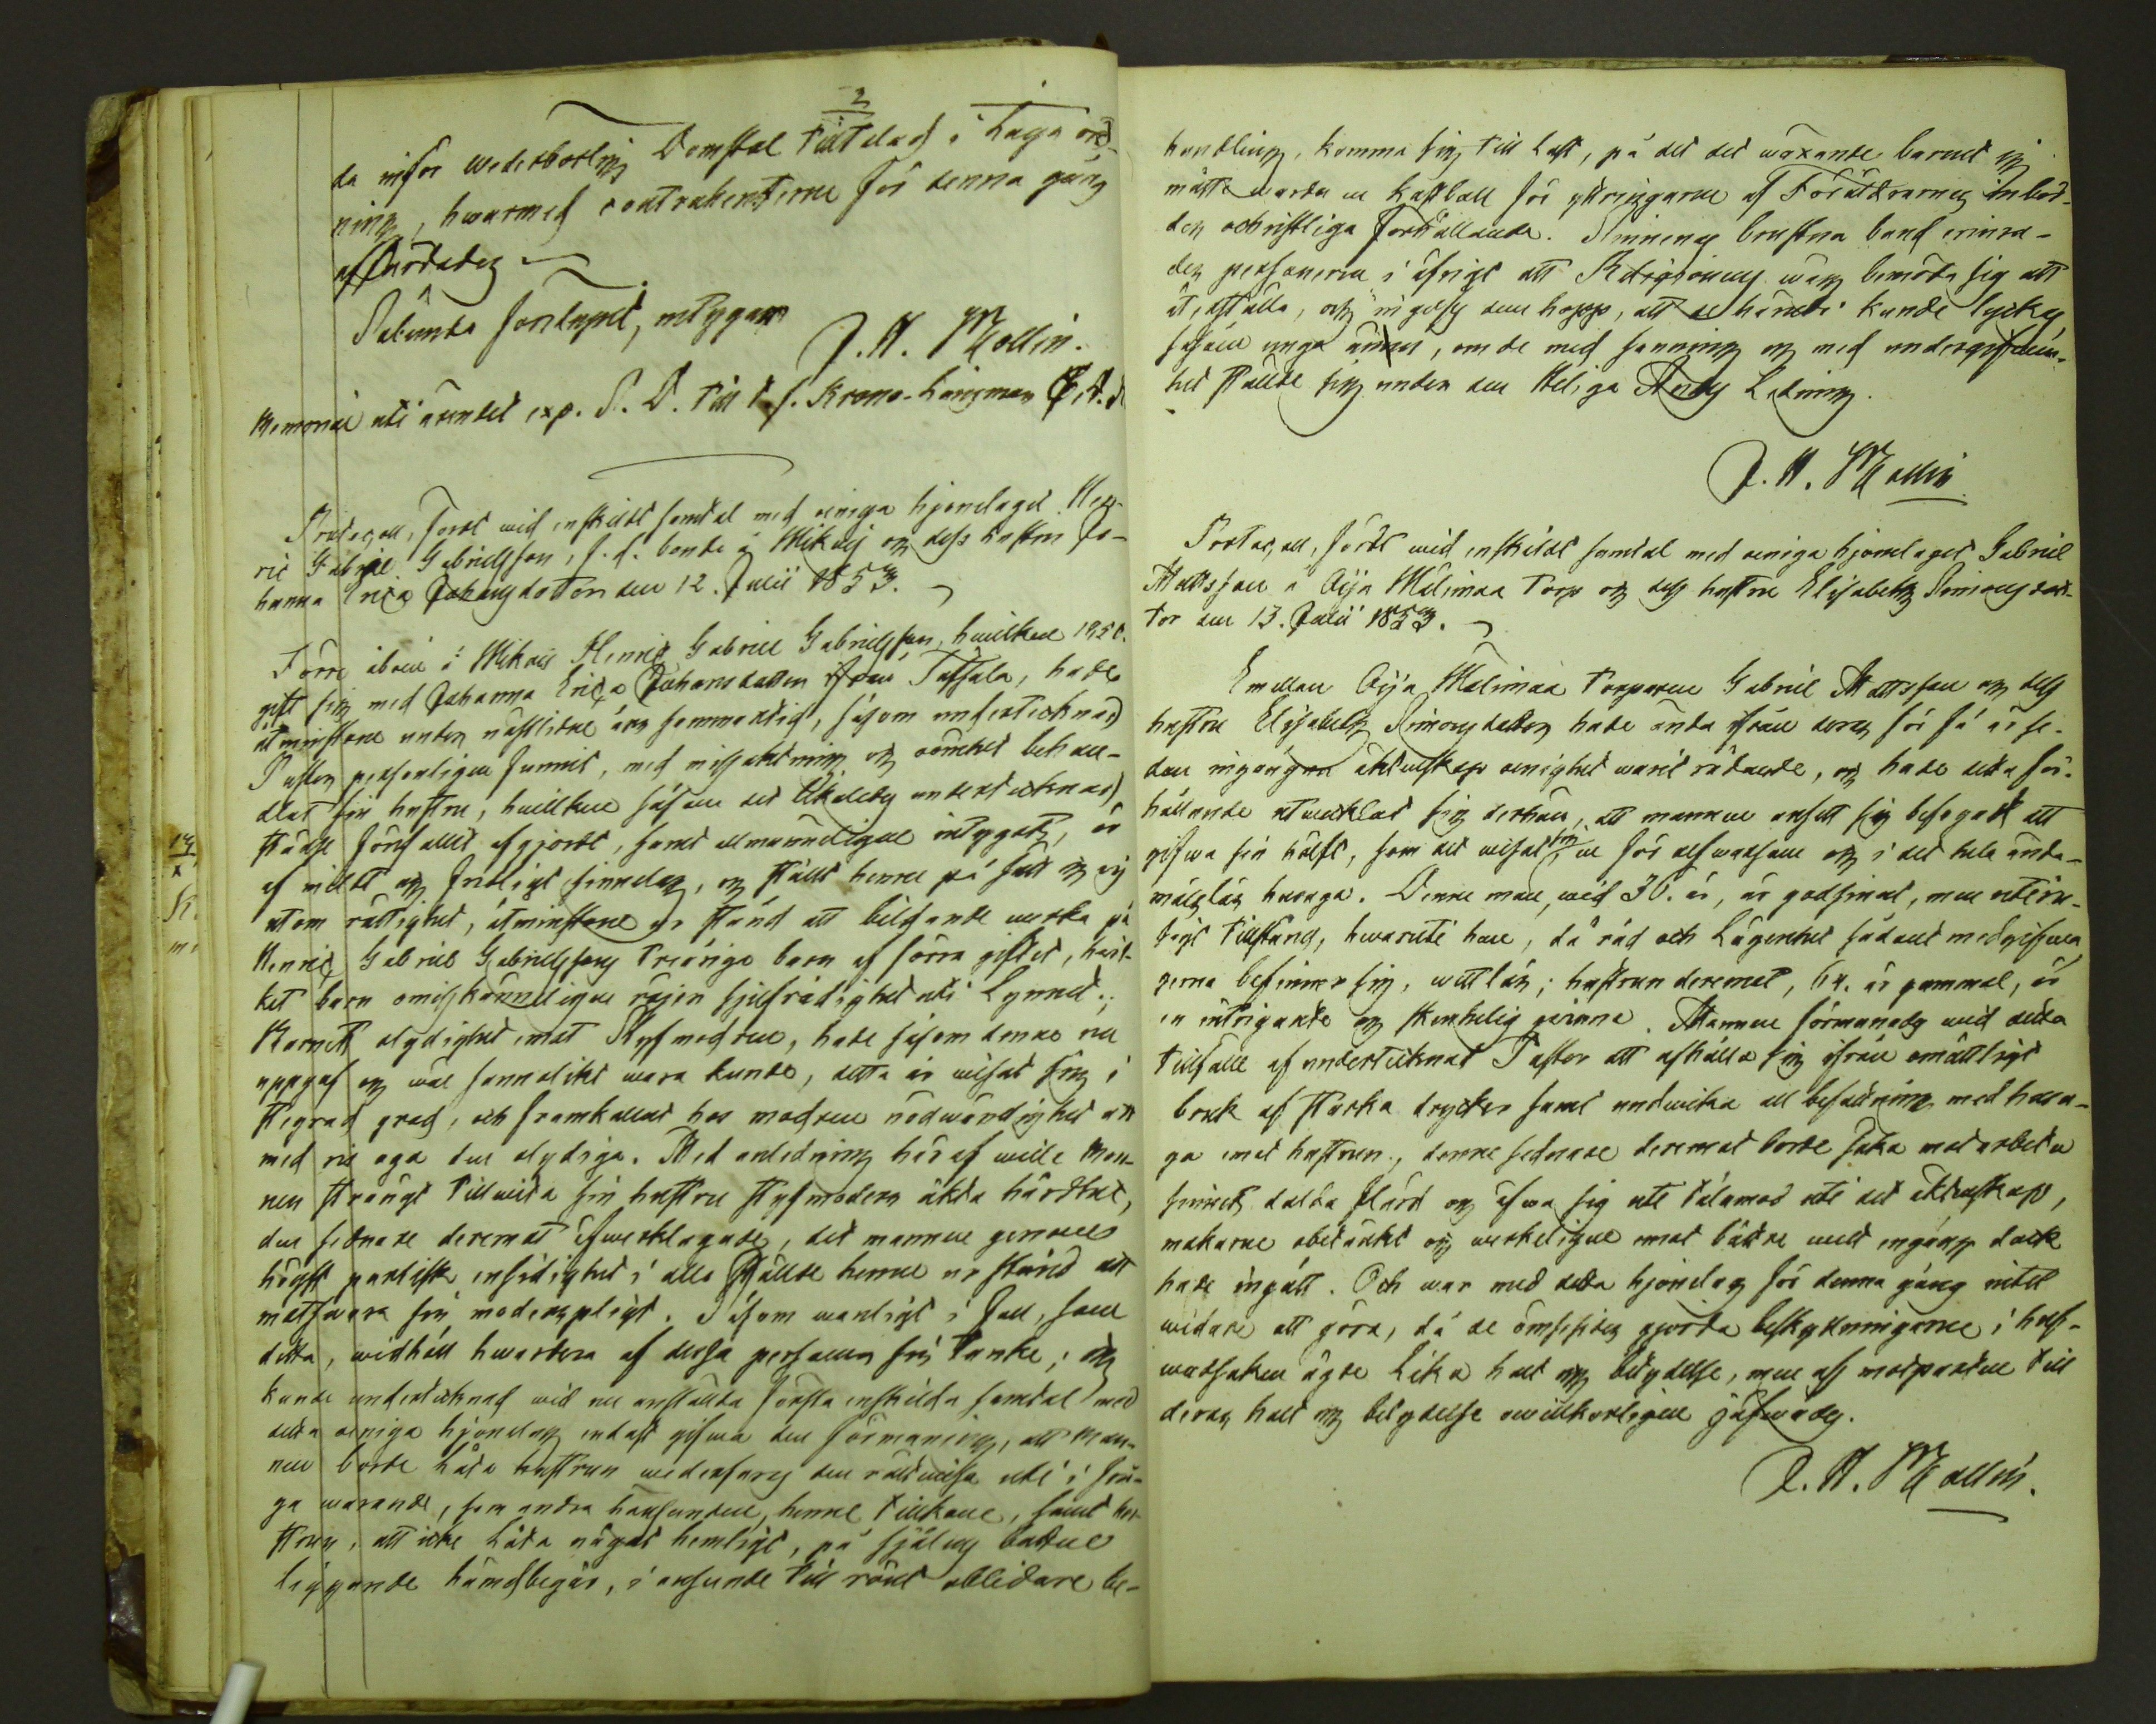 2
da infor wederbörlig Domstol tilltalas i Laga ord-
ning, hwarmed contrahenterne för denna gång
affärdades
Sålunda förelupit, intygar
J. H. Mollin.
Memorial uti ärendet exp. S. D. till t. f. Krono-Länsman
Protocoll, fördt wid enskildt samtal med oeniga hjonelaget Hen-
ric Gabriel Gabrielsson, f. d. bonde i Mikois og dess hustru Jo-
hanna Erica Johansdotter den 12. Julii 1853.
Förre åboen å Mikois Henric Gabriel Gabrielsson, hwilken 1850.
gift sig med Johanna Erica Johansdotter ifrån Tassala, hade
åtminstone under nästlidne års sommartid, såsom undertecknad
Pastor personligen funnit, med missaktning og oömhet behan-
dlat sin hustru, hwilken såsom det likaledes undertecknad
tränse förefallit afgjordt, samt allmänneligen intygats, är
af mildt og fridligt sinnelag, og ställt henne på sätt og wis
utom rättighet, åtminstone ur stånd att bildande werka på
Henric Gabriel Gabrielssons treåriga barn af förra giftet, hwil-
ket barn omisskänneligen röjer sjelfrådighet uti Lynnet;
Barnets olydighet emot Styfmodren, hade såsom denne nu
uppgaf og wäl sannolikt wara kunde, detta år wisat sig i
stegrad grad, och framkallat hos modren nödwändighet att
med ris aga den olydiga. Med anledning häraf wille Man-
nen strängt tillwita sin hustru styfmoders äkta hårdhet,
den sednare deremot öfwerklagade, det mannen genom
högst partisk ensidighet i allo ställde henne ur stånd att
motswara sin moderspligt. Såsom wanligt i fall, som
detta, widhöll hwardera af dessa personer sin tanke; og
kunde undertecknad wid nu anställda första enskilda samtal med
detta oeniga hjonelag endast gifwa den förmaning, att man-
nen borde låta hustrun wederfaras den rättwisa uti i frå-
ga warande, som andra hänseenden, henne tillkom, samt hu-
strun, att icke låta något hemligt, på själens botten
liggande hämdbegär, i anseende till rönt oblidare be-
handling, komma sig till last, på det det wäxande barnet ej
måtte warda en kastboll för yttringarne af Föräldrarnes inbör-
des ochristliga förhållande. Sinnenas brustna band erinra-
des personerna i öfrigt att Religionens wäg bemöda sig att
återställa, og ingafs dem hopp, att det häruti kunde lyckas
såsom unga ännu, om de med sanning og med undergifwen-
het ställde sig under den Heliga Andes Ledning.
J. H. Mollin
Protocoll, fördt wid enskildt samtal med oeniga hjonelaget Gabriel
Mattsson å Oija Mälimaa Torp og dess hustru Elisabeth Simonsdot-
ter den 13. Julii 1853.
Emellan Oija Mälimaa Torparen Gabriel Mattsson og dess
hustru Elisabeth Simonsdotter hade ända ifrån deras för få år se-
dan ingångna äktenskap oenighet warit rådande, og hade detta för-
hållande utwecklat sig derhän, att mannen ansett sig befogad att
gifwa sin hälft, som det wisat sig en för elfwadsam og i det hela ända-
målslös husaga. Denne man, wid 30. år, är godsint, men uti ru-
sigt tillstånd, hwaruti han, då råd och Lägenhet sådant medgifwa
gerna befinner sig, wettlös; hustrun deremot, 64. år gammal, är
en intrigante og skenhelig qwinna. Mannen förmanades wid detta
tillfälle af undertecknad Pastor att afhålla sig ifrån omåttligt
bruk af starka drycker samt undwika all befattning med husa-
ga emot hustrun, denna sednare deremot borde söka motarbeta
sinnets dolda flärd og öfwa sig uti tålamod uti det äktenskap,
makarne obetänkt og werkeligen emot bättre wett ingång dock
hade ingått. Och war med detta hjonelag för denna gång intet
widare att göra, då de ömsesides gjorda beskyllningarne i huf-
wudsaken ägde lika halt og betydelse, men af motparten till
deras halt og betydelse owillkorligen jäfwades.
J. H. Mollin.